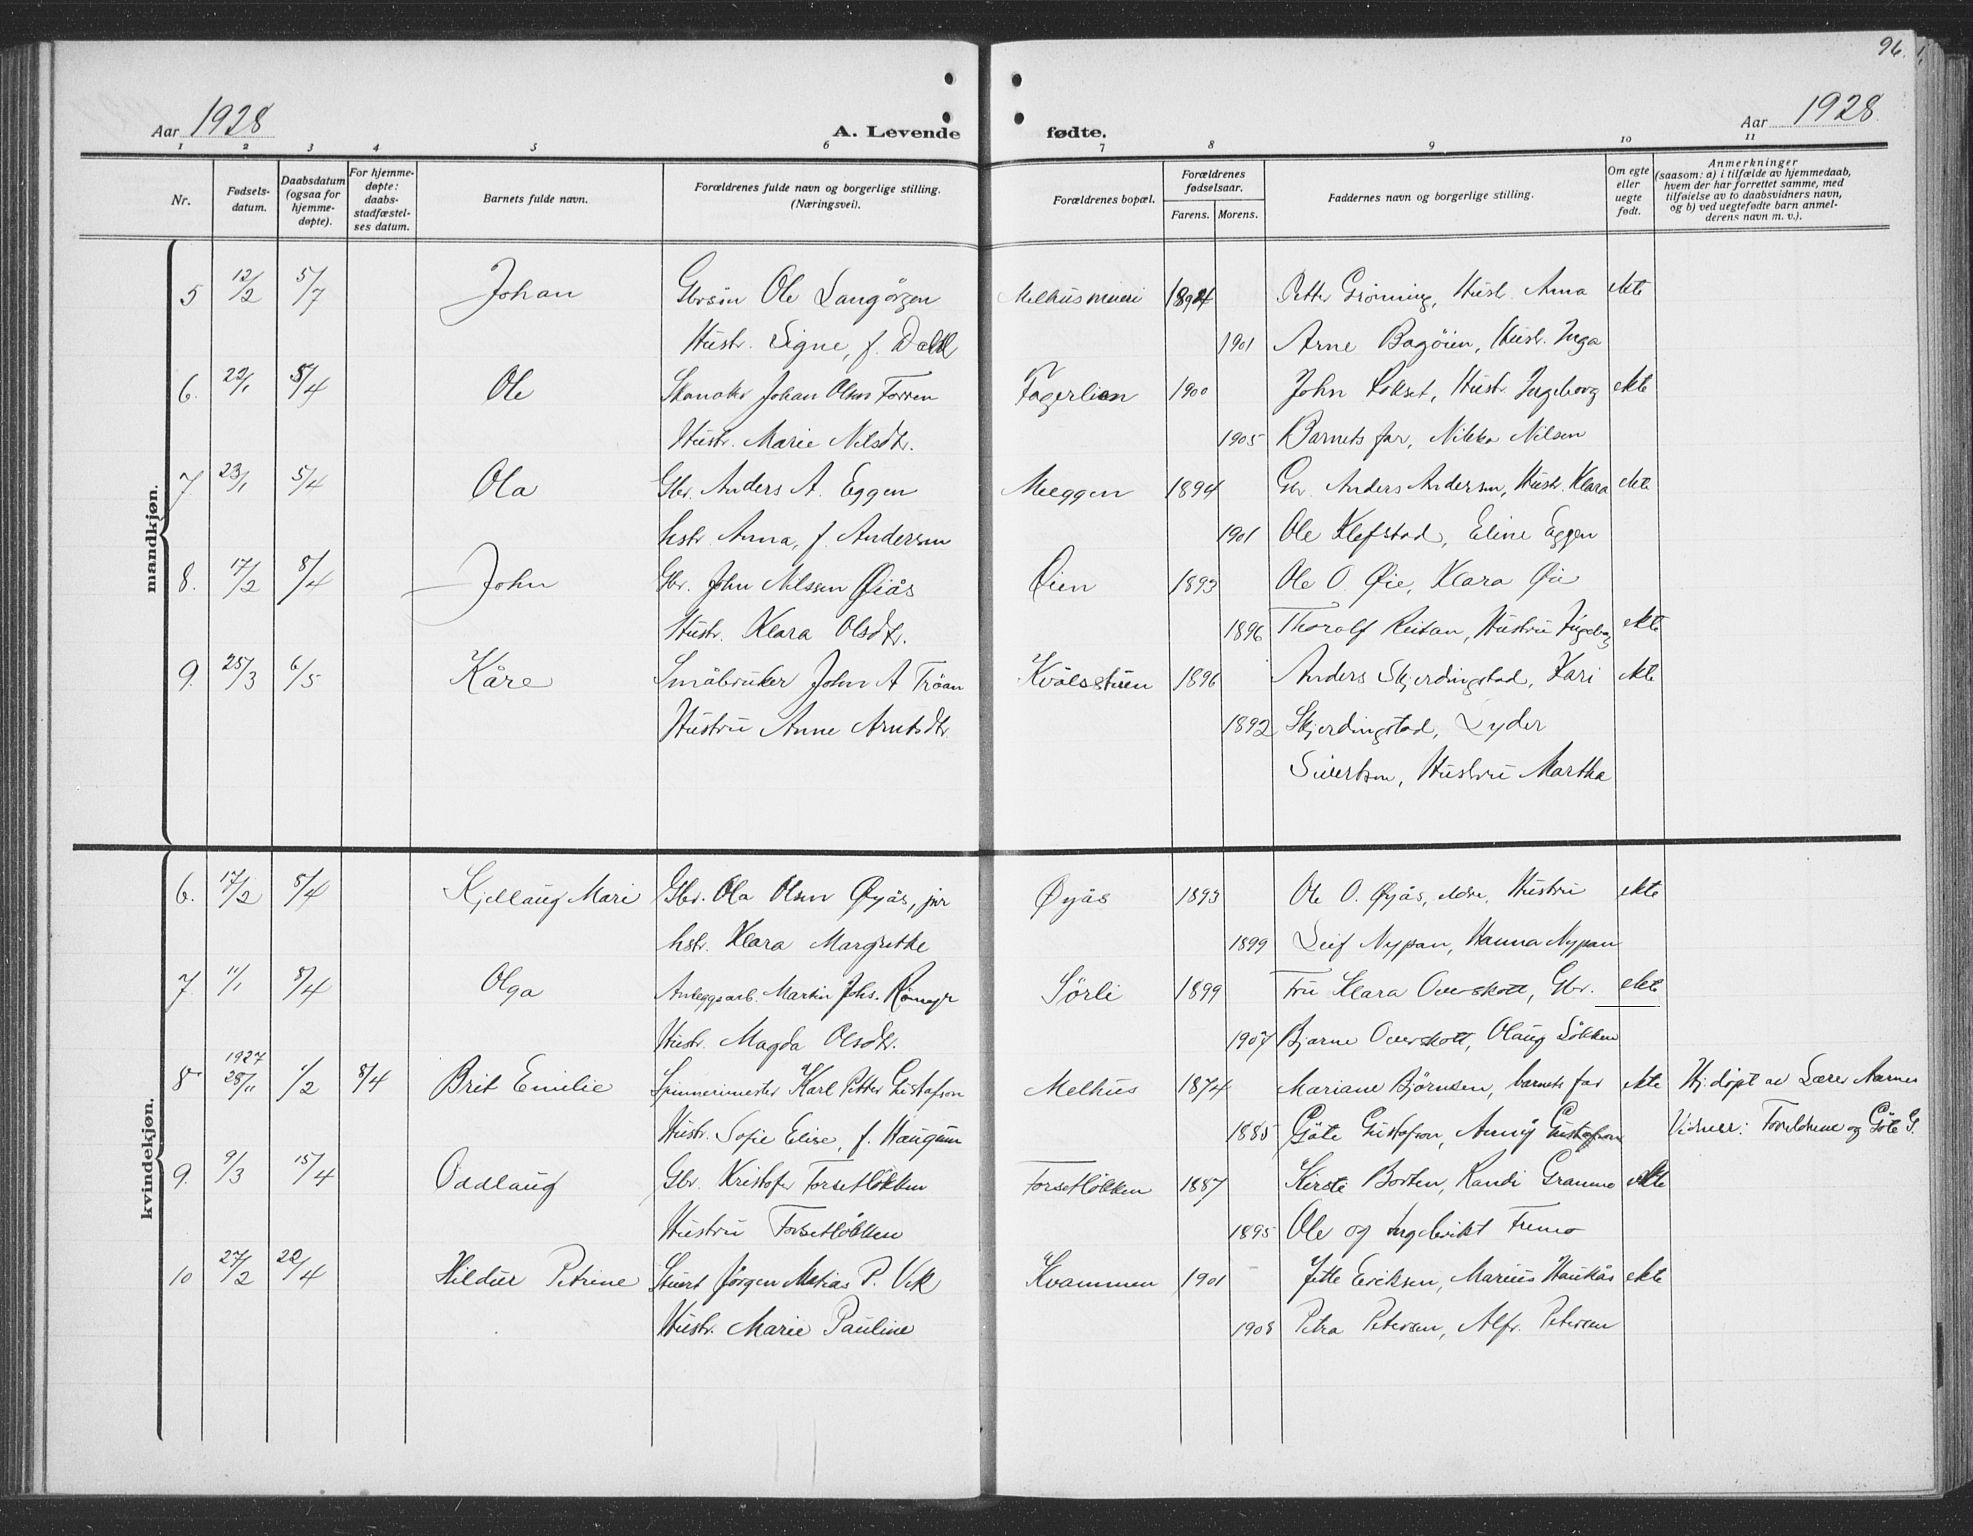 96.
Aar 1928 A. Levende fødte. Aar 1928.
1 2 3 4 5 6 7 8 9 10 11
Nr. Fødsels-datum. Daabsdatum (ogsaa for hjemme-døpte). For hjemme-døpte: daabs-stadfæstel-ses datum. Barnets fulde navn. Forældrenes fulde navn og borgerlige stilling. (Næringsvei). Forældrenes bopæl. Forældrenes fødselsaar. Farens. Morens. Faddernes navn og borgerlige stilling. Om egte eller uegte født. Anmerkninger (saasom: a) i tilfælde av hjemmedaab, hvem der har forrettet samme, med tilføielse av to daabsvidners navn, og b) ved uegtefødte barn anmel-derens navn m. v.).
mandkjøn.
5 12/2 5/7 Johan Gbrsøn Ole Langørgen Melhus meieri 1894 Petter Grønning, Hust. Anna ekte
Hustr. Signe, f. Dahl 1901 Arne Bagøien, Hustr. Inga
6. 22/1 5/4 Ole Johan Olsen Forren Fagerlien 1900 John Lokset, Hustr. Ingeborg ekte
Hustr. Marie Nilsdtr. 1905 Barnets far, Nilsen
7 23/1 5/4 Ola Gbr. Anders A. Eggen Meeggen 1894 Gbr. Anders Andersen, Hustr. Klara ekte
hstr. Anna, f. Andersen 1901 Ole Klefstad, Eline Eggen
8. 17/2 8/4 John Gbr. John Nilssen Øiås Øien 1893 Ole O. Øie, Klara Øie
Hustr. Klara Olsdtr. 1896 Thoralf Reitan, Hustru Ingeborg ekte
9. 25/3 6/5 Kåre Småbruker John A Trøan Kvålsstuen 1896 Anders Skjerdingstad, Kari ekte
Hustru Anne Arntsdtr 1892 Skjerdingstad, Lyder
Sivertsen, Hustru Martha
kvindekjøn.
6. 17/2 8/4 Kjellaug Mari Gbr. Ola Olsen Øyås, jnr Øyås 1893 Ole O. Øyås, eldre, Hustru ekte
hstr. Klara Margrethe 1899 Leif Nypan, Hanna Nypan
7 11/1 8/4 Olga Anleggsarb. Martin Johs. Sørli 1899 Fru Klara Overskott, Gbr. ekte
Hustr. Magda Olsdtr. 1907 Bjarne Overskott, Olaug Løkken
1927
8 28/11 1/2 8/4 Brit Emilie Spinnerimester Karl Petter Gustafson Melhus 1874 Mariane Bjørnsen, barnets far ekte Hj. døpt av Lærer Aarnes
Hustr. Sofie Elise, f. Haugum 1885 Göte Gustafson, Gustafson Vidner: Foreldrene og Göte G.
9. 9/3 15/4 Oddlaug Gbr. Kristofer Forsetløkken Forsetløkken 1887 Kirste Borten, Randi Gramme ekte
Hustru Forsetløkken 1895 Ole og Ingebrikt Fremo
10 27/2 22/4 Hildur Petrine Jørgen Matias P. Vik Kvammen 1901 Jette Eriksen, Marius Haukås ekte
Hustr. Marie Pauline 1908 Petra Petersen, Alfr. Petersen